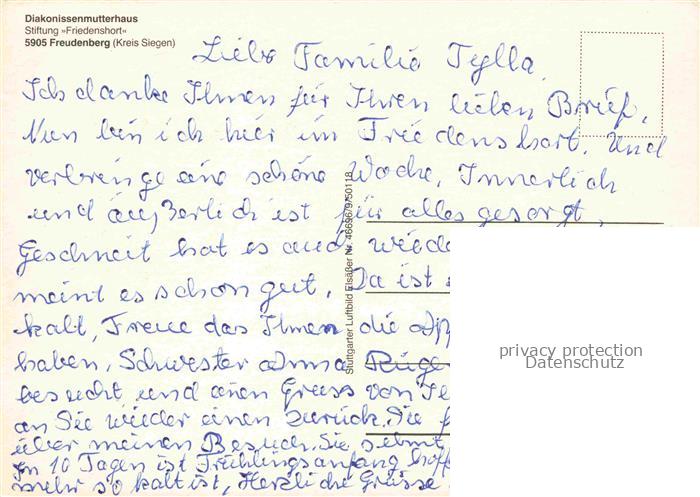 Diakonissenmutterhaus
Stiftung »Friedenshort«
5905 Freudenberg (Kreis Siegen)
Liebe Familie Tylla,
Ich danke Ihnen für Ihren lieben Brief,
Nun bin ich hier im Friedenshort. Und
verbringe eine schöne Woche, Innerlich
und äußerlich ist für alles gesorgt,
Geschneit hat es auch wiede
meint es schon gut, Da ist
kalt, Freue das Ihnen die
haben, Schwester Anna Rüge
besucht und einen Gruss von
an Sie wieder einen zurück. Sie
über meinen Besuch, Sie sehnt
In 10 Tagen ist Frühlingsanfang,
mehr so kalt ist, Herzliche Grüsse
Stuttgarter Luftbild Elsäßer Nr. 46696/9/50118
privacy protection
Datenschutz